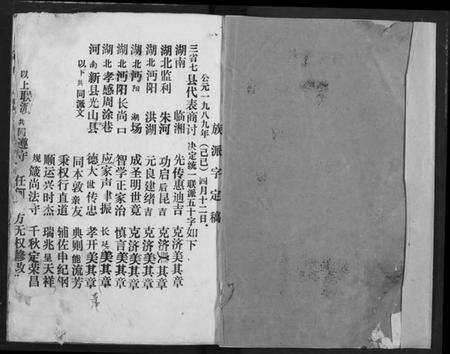 族派字定稿
公元一九八九年(己巳)四月十二日。
三省七县代表商讨决定统一联派五十字如下
湖南 临湘 先传惠迪吉 克济美其章
湖北监利 朱河 功启后昆吉 克济美其章
湖北沔阳 洪湖 元良建绪吉 克济美其章
湖北沔阳 场 成圣明世竟 克济美其章
湖北沔阳长尚口 智学正家治 慎言美其章
湖北孝感周涂巷 应家声聿振 美其章
河南新县光山县 德大毗传忠 孝开美其章
以下共同派文 同本敦亲友 典则能流芳
秉权行直道 辅佐申纪钢
顺运兴时杰 瑞兆呈天祥
规箴尚法守 千秋定荣昌
以上联派共同遵守 任何 方无权修改